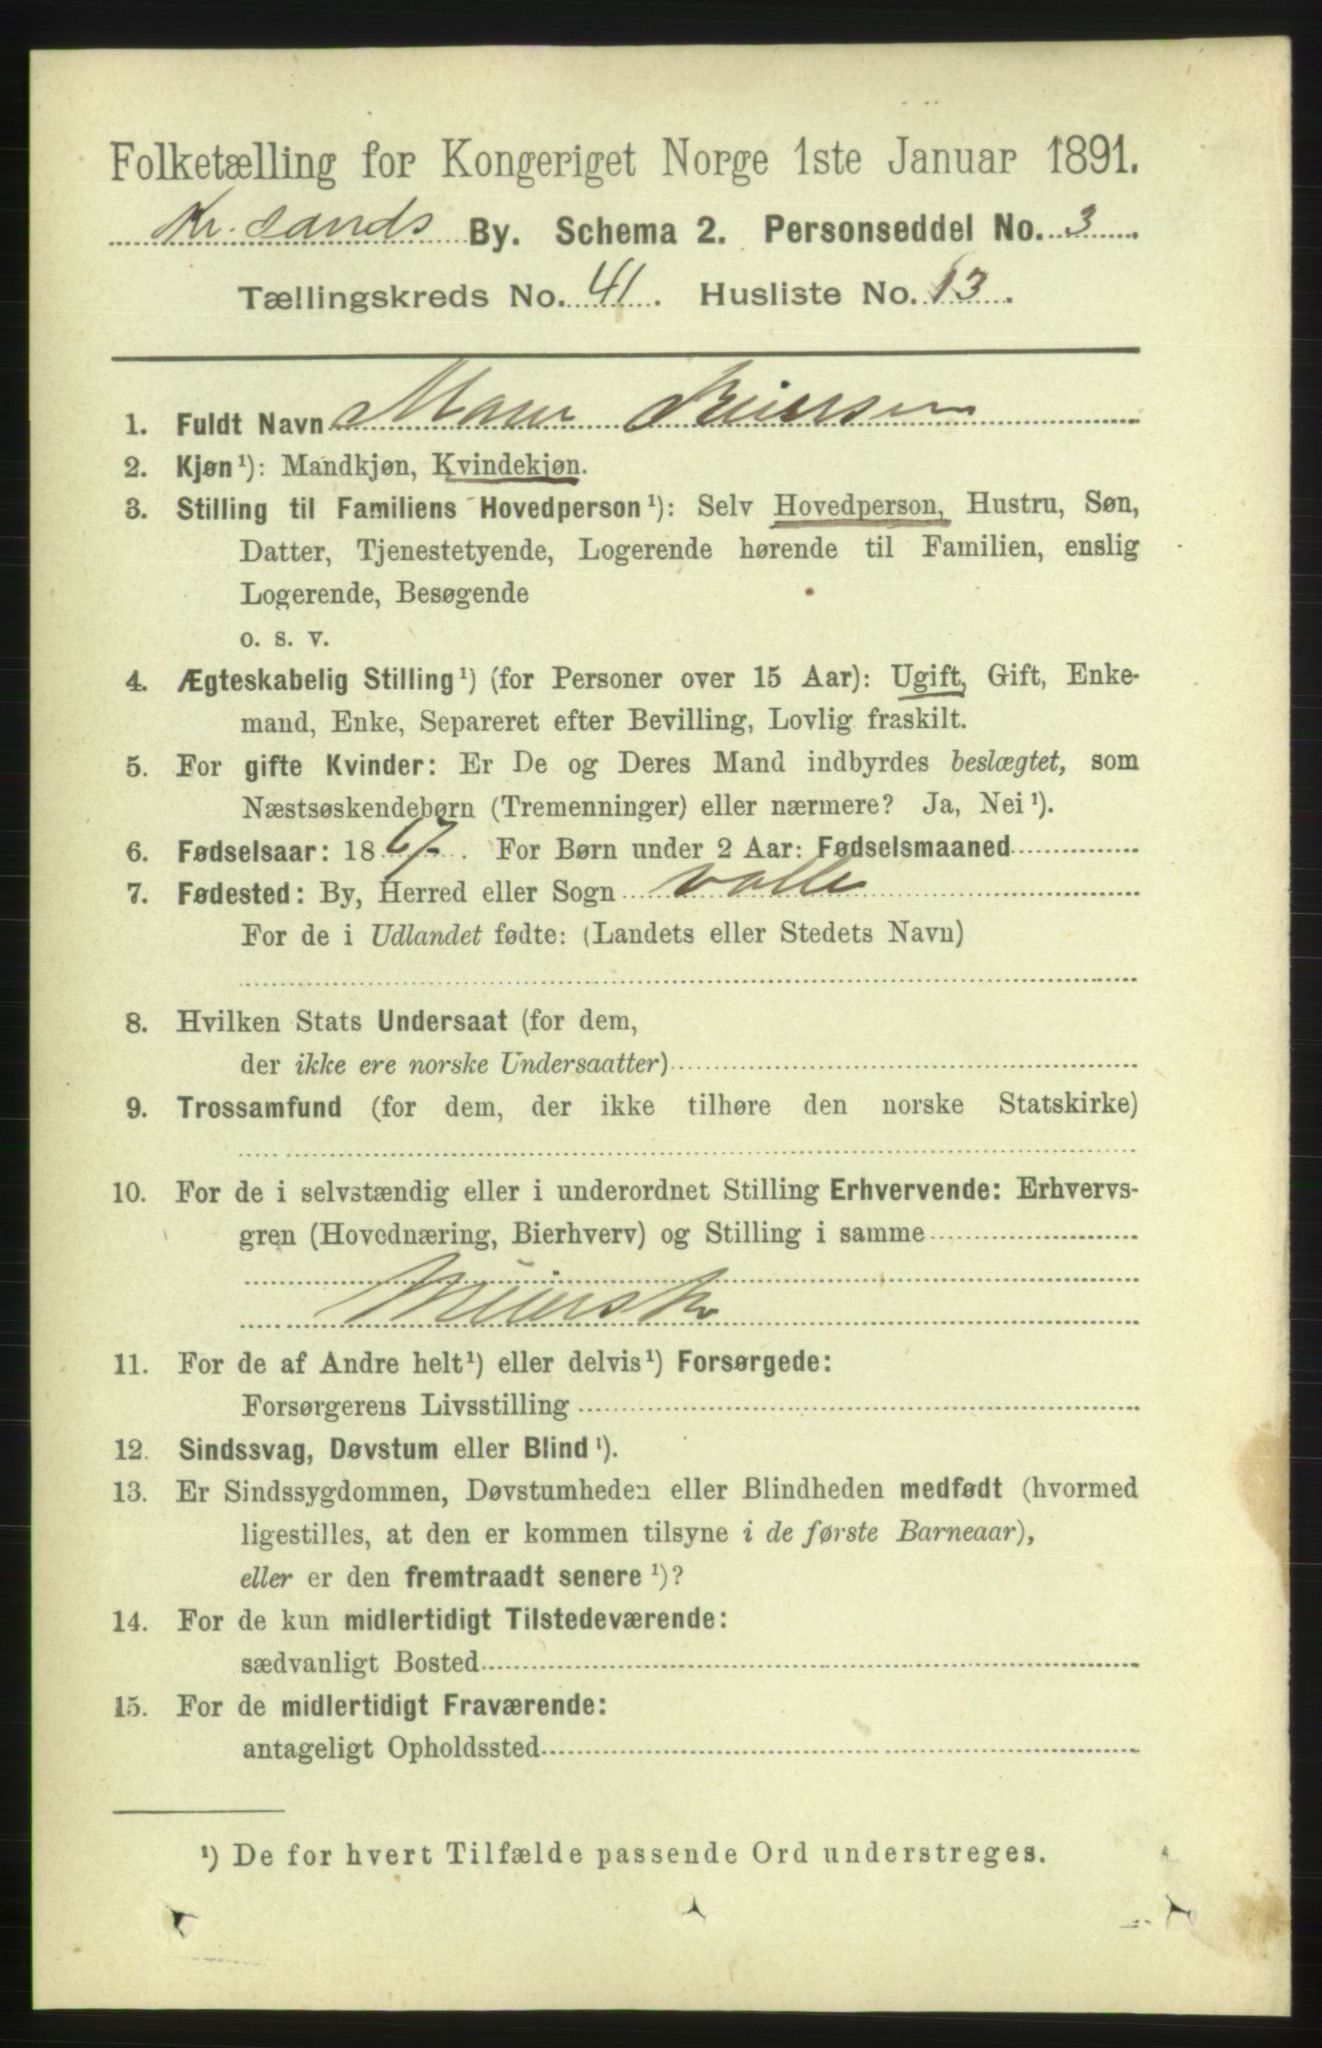 Folketælling for Kongeriget Norge 1ste Januar 1891.
Kr. sands By. Schema 2. Personseddel No. 3.
Tællingskreds No. 41. Husliste No. 13.
1. Fuldt Navn
2. Kjøn¹): Mandkjøn, Kvindekjøn.
3. Stilling til Familiens Hovedperson¹): Selv Hovedperson, Hustru, Søn,
Datter, Tjenestetyende, Logerende hørende til Familien, enslig
Logerende, Besøgende
o. s. v.
4. Ægteskabelig Stilling¹) (for Personer over 15 Aar): Ugift, Gift, Enke-
mand, Enke, Separeret efter Bevilling, Lovlig fraskilt.
5. For gifte Kvinder: Er De og Deres Mand indbyrdes beslægtet, som
Næstsøskendebørn (Tremenninger) eller nærmere? Ja, Nei¹).
6. Fødselsaar: 1867. For Børn under 2 Aar: Fødselsmaaned
7. Fødested: By, Herred eller Sogn Valle
For de i Udlandet fødte: (Landets eller Stedets Navn)
8. Hvilken Stats Undersaat (for dem,
der ikke ere norske Undersaatter)
9. Trossamfund (for dem, der ikke tilhøre den norske Statskirke)
10. For de i selvstændig eller i underordnet Stilling Erhvervende: Erhvervs-
gren (Hovednæring, Bierhverv) og Stilling i samme
11. For de af Andre helt¹) eller delvis¹) Forsørgede:
Forsørgerens Livsstilling
12. Sindssvag, Døvstum eller Blind¹).
13. Er Sindssygdommen, Døvstumheden eller Blindheden medfødt (hvormed
ligestilles, at den er kommen tilsyne i de første Barneaar),
eller er den fremtraadt senere¹)?
14. For de kun midlertidigt Tilstedeværende:
sædvanligt Bosted
15. For de midlertidigt Fraværende:
antageligt Opholdssted
¹) De for hvert Tilfælde passende Ord understreges.